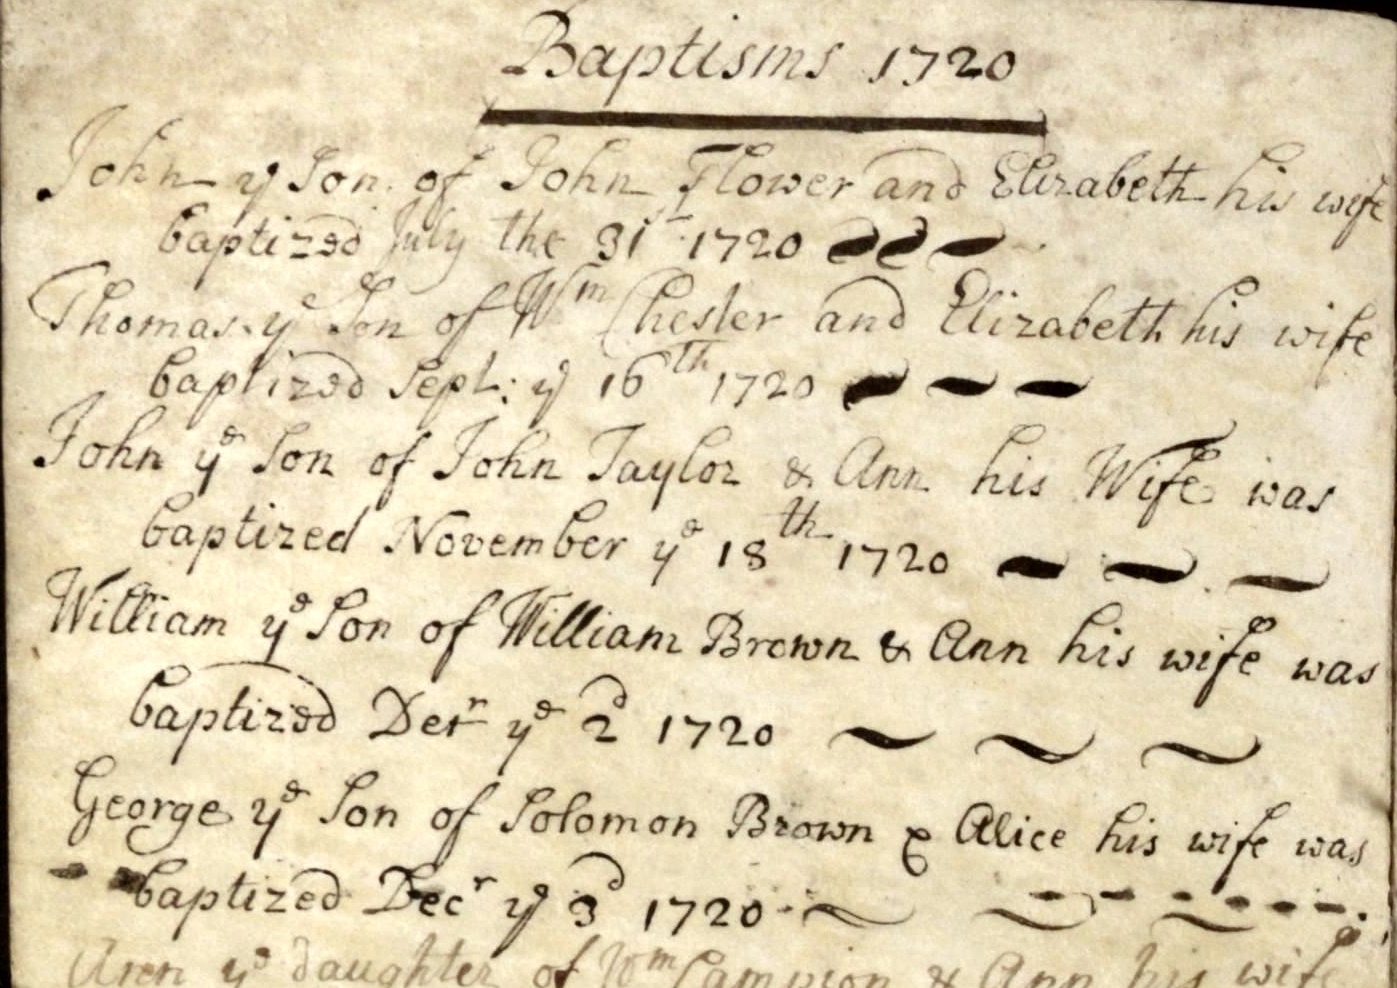 Baptisms 1720
John ye Son of John Flower and Elizabeth his wife
baptized July the 31st 1720
Thomas ye Son of Wm Chester and Elizabeth his wife
baptized Sept: ye 16th 1720
John ye Son of John Taylor & Ann his Wife was
baptized November ye 18th 1720
William ye Son of William Brown & Ann his wife was
baptized Decr ye 2d 1720
George ye Son of Solomon Brown & Alice his wife was
baptized Decr ye 3d 1720
ye daughter of Wm Campion & Ann his wife